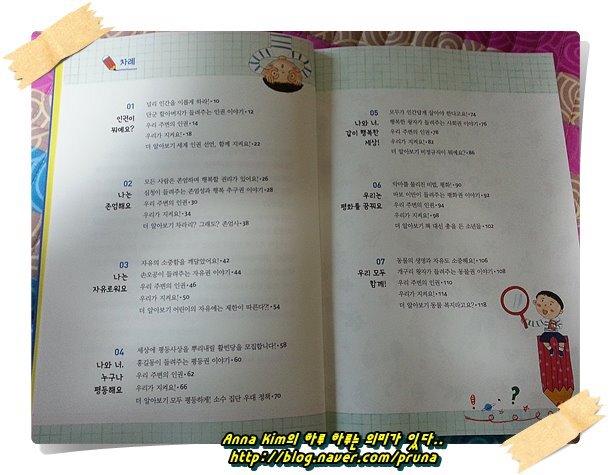 차례
01
인권이
뭐예요?
널리 인간을 이롭게 하라! • 10
단군 할아버지가 들려주는 인권 이야기 • 12
우리 주변의 인권 • 14
우리가 지켜요! • 18
더 알아보기 세계 인권 선언, 함께 지켜요! • 22
02
나는
존엄해요
모든 사람은 존엄하며 행복할 권리가 있어요! • 26
심청이 들려주는 존엄성과 행복 추구권 이야기 • 28
우리 주변의 인권 • 30
우리가 지켜요! • 34
더 알아보기 차라리? 그래도? 존엄사 • 38
03
나는
자유로워요
자유의 소중함을 깨달았어요! • 42
손오공이 들려주는 자유권 이야기 • 44
우리 주변의 인권 • 46
우리가 지켜요! • 50
더 알아보기 어린이의 자유에는 제한이 따른다?! • 54
04
나와 너,
누구나
평등해요
세상에 평등사상을 뿌리내릴 활빈당을 모집합니다! • 58
홍길동이 들려주는 평등권 이야기 • 60
우리 주변의 인권 • 62
우리가 지켜요! • 66
더 알아보기 모두 평등하게! 소수 집단 우대 정책 • 70
05
나와 너,
같이 행복한
세상!
모두가 인간답게 살아야 한다고요! • 74
행복한 왕자가 들려주는 사회권 이야기 • 76
우리 주변의 인권 • 78
우리가 지켜요! • 82
더 알아보기 비정규직이 뭐예요? • 86
06
우리는
평화를 꿈꿔요
악마를 물리친 비법, 평화! • 90
바보 이반이 들려주는 평화권 이야기 • 92
우리 주변의 인권 • 94
우리가 지켜요! • 98
더 알아보기 책 대신 총을 든 소년들 • 102
07
우리 모두
함께!
동물의 생명과 자유도 소중해요! • 106
개구리 왕자가 들려주는 동물권 이야기 • 108
우리 주변의 인권 • 110
우리가 지켜요! • 114
더 알아보기 동물 복지라고요? • 118
?
Anna Kim의 하루 하루는 의미가 있다..
http://blog.naver.com/pruna